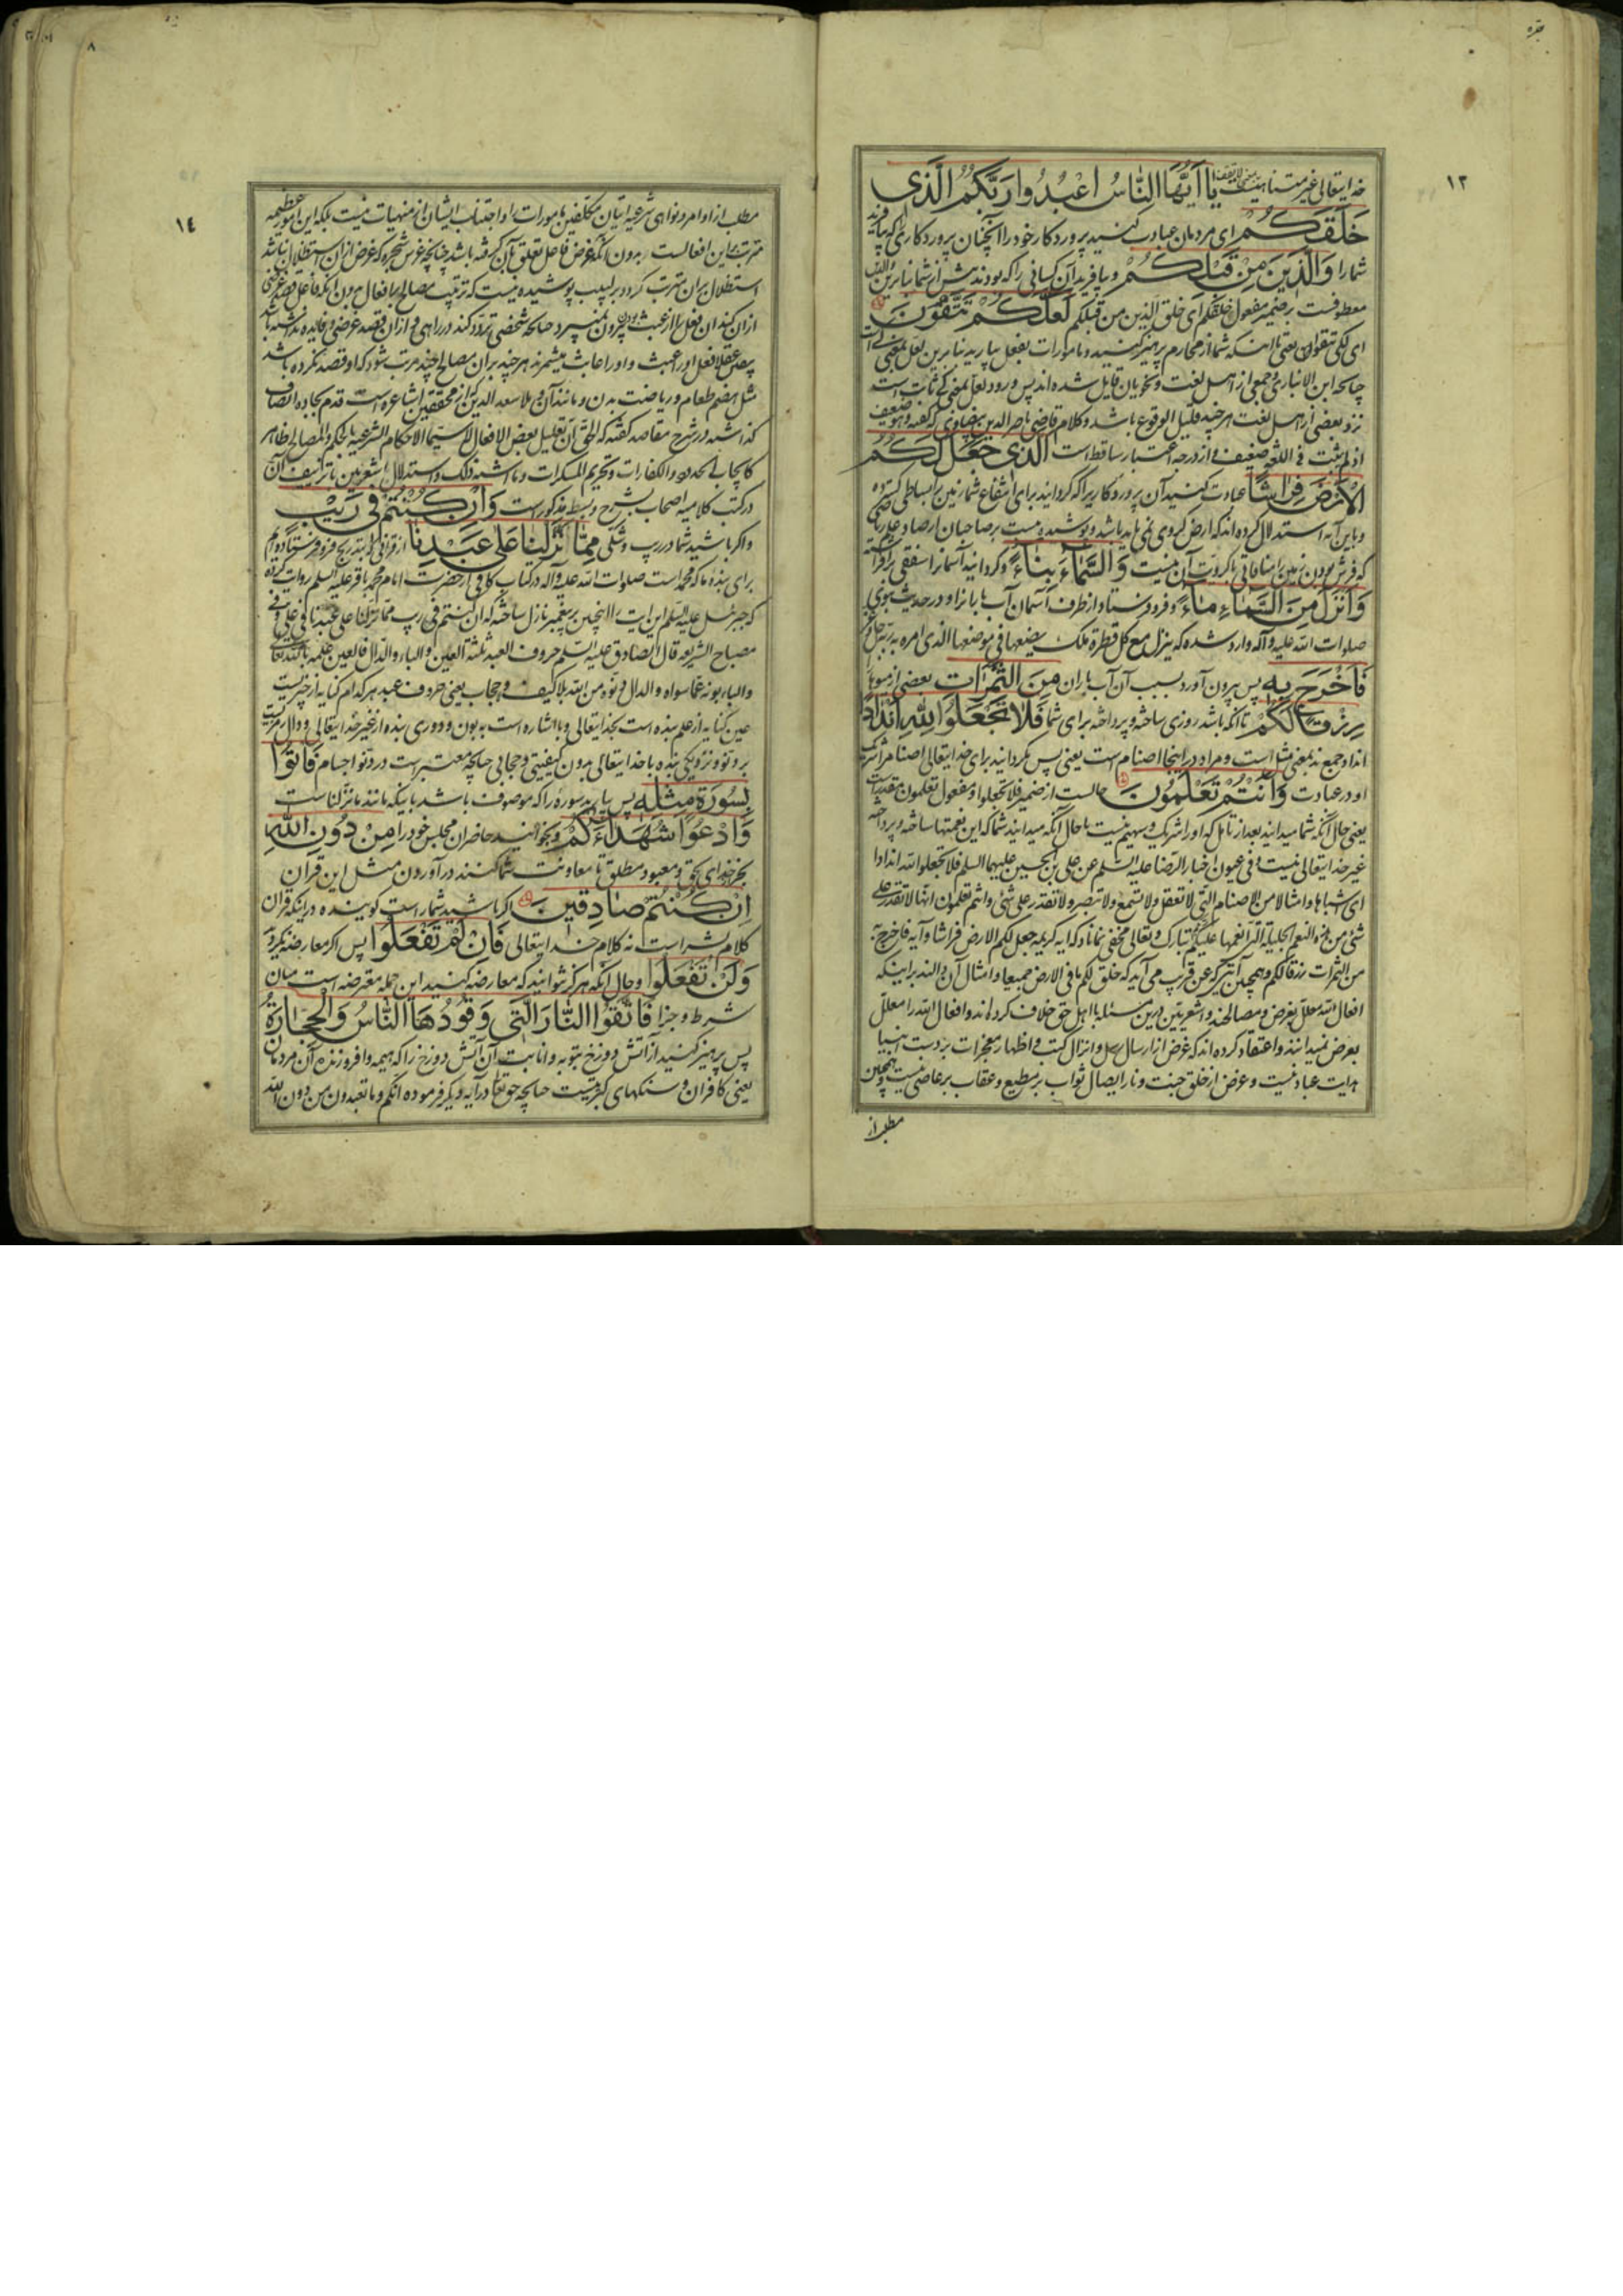 ۱۳
خدایتعالی غیر متناهیست یَا أَیُّهَا النَّاسُ اعْبُدُوا رَبَّکُمُ الَّذِی
خَلَقَکُمْ ای مردمان عبادت کنید پروردکار خود را آنچنان پروردکاری که بیافرید
شما را وَالَّذِینَ مِنْ قَبْلِکُمْ و بیافرید آن کسانی را که بودند پیش از شما بنابرین والذین
معطوفست بر ضمیر مفعول خلقکم ای خلق الذین من قبلکم لَعَلَّکُمْ تَتَّقُونَ
ای لکی تتقون یعنی تا اینکه شما از محارم پرهیز کنید و مامورات بفعل بیارید بنابرین لعل بمعنی کی است
چنانچه ابن الانباری و جمعی از اهل لغت و نحویان قایل شده اند پس ورود لعل بمعنی کی ثابت است
نزد بعضی از اهل لغت هر چند قلیل الوقوع باشد و کلام قاضی ناصر الدین بیضاوی که گفته و هو ضعیف
اذ لم یثبت فی اللغة ضعیف و از درجه اعتبار ساقط است الَّذِی جَعَلَ لَکُمُ
الْأَرْضَ فِرَاشًا عبادت کنید آن پروردکاریرا که کردانید برای انتفاع شما زمین را بساطی کسترده
و باین آیه استدلال کرده اند که ارض کروی نمی باید باشد و پوشیده نیست بر صاحبان ارصاد
که فرش بودن زمین را منافاتی با کرویت آن نیست وَالسَّمَاءَ بِنَاءً و کردانید آسمانرا سقفی برافراشته
وَأَنْزَلَ مِنَ السَّمَاءِ مَاءً و فرو فرستاد از طرف آسمان آب باران را و در حدیث نبوی
صلوات الله علیه و آله وارد شده که ینزل مع کل قطرة ملک یضعها فی موضعها الذی امره به ربه عز و جل
فَأَخْرَجَ بِهِ پس بیرون آورد بسبب آن آب باران مِنَ الثَّمَرَاتِ بعضی از میوها
رِزْقًا لَکُمْ تا آنکه باشد روزی ساخته و پرداخته برای شما فَلَا تَجْعَلُوا لِلَّهِ أَنْدَادًا
انداد جمع ند بمعنی مثل است و مراد در اینجا اصنام است یعنی پس مکردانید برای خدایتعالی اصنام را شریک
او در عبادت وَأَنْتُمْ تَعْلَمُونَ حالست از ضمیر فلا تجعلوا و مفعول تعلمون مقدر است
یعنی حال آنکه شما میدانید بعد از تامل که او را شریک و سهیم نیست یا حال آنکه میدانید شما که این نعمتها ساخته و پرداخته
غیر خدایتعالی نیست و فی عیون اخبار الرضا علیه السلم عن علی بن الحسین علیهما السلم فلا تجعلوا لله اندادا
ای اشباها و امثالا من الاصنام التی لا تعقل ولا تسمع ولا تبصر ولا تقدر علی شئ وانتم تعلمون انها لا تقدر علی
شئ من هذه النعم الجلیلة التی انعمها علیکم ربکم تبارک و تعالی مخفی نماناد که آیه کریمه جعل لکم الارض فراشا و آیه فاخرج به
من الثمرات رزقا لکم و همچنین آیتی که عن قریب می آید که خلق لکم ما فی الارض جمیعا و امثال آن دال اند بر اینکه
افعال الله معلل بغرض و مصالحند و اشعریین درین مسئله با اهل حق خلاف کرده اند و افعال الله را معلل
بغرض نمیدانند و اعتقاد کرده اند که غرض از ارسال رسل و انزال کتب و اظهار معجزات بر دست انبیا
هدایت عباد نیست و غرض از خلق جنت و نار ایصال ثواب بر مطیع و عقاب بر عاصی نیست و همچنین
مطلب از
۱٤
مطلب از اوامر و نواهی شرعیه اتیان مکلفین بمامورات او و اجتناب ایشان از منهیات نیست بلکه این امور عظیمه
مترتب براین افعالست بدون آنکه غرض فاعل تعلق بآن کرفته باشد چنانچه غرس شجره که غرض از آن استظلال نباشد
استظلال بران مترتب کردد بر لبیب پوشیده نیست که ترتیب مصالح بر افعال بدون آنکه فاعل قصد غرضی
ازان کند ان فعل را از عبث بودن بیرون نمیبرد چنانچه شخصی تردد کند در راهی و ازان قصد غرضی و فایده نداشته باشد
پس عقلا فعل او را عبث و او را عابث میشمرند هر چند بران مصالح چند مرتب شود که او قصد نکرده باشد
مثل هضم طعام و ریاضت بدن و مانند آن و ملا سعد الدین که از محققین اشاعره است قدم بجاده انصاف
گذاشته در شرح مقاصد گفته که الحق ان تعلیل بعض الافعال لا سیما الاحکام الشرعیة بالحکم والمصالح ظاهر
کایجاب الحدود والکفارات و تحریم المسکرات و ما اشبه ذلک و استدلال اشعریین با تزییف آن
در کتب کلامیه اصحاب بشرح و بسط مذکورست وَإِنْ کُنْتُمْ فِی رَیْبٍ
و اکر باشید شما در ریب و شکی مِمَّا نَزَّلْنَا عَلَی عَبْدِنَا از قرآنی که بتدریج فرو فرستاده ایم
برای بنده ما که محمد است صلوات الله علیه و آله در کتاب کافی از حضرت امام محمد باقر علیه السلم روایت کرده
که جبرئیل علیه السلم این آیت را اینچنین بر پیغمبر نازل ساخته که ان کنتم فی ریب مما نزلنا علی عبدنا فی علی و فی
مصباح الشریعه قال الصادق علیه السلم حروف العبد ثلثة العین والباء والدال فالعین علمه بالله تعالی
والباء بونه عما سواه والدال دنوه من الله بلا کیف و حجاب یعنی حروف عبد هر کدام کنایه از چیزیست
عین کنایه از علم بنده است بخدایتعالی و با اشاره است به بون و دوری بنده از غیر خدایتعالی و دال رمزیست
بر دنو و نزدیکی بنده با خدایتعالی بدون کیفیتی و حجابی چنانچه معتبرست در دنو اجسام فَأْتُوا
بِسُورَةٍ مِثْلِهِ پس بیارید سوره را که موصوف باشد باینکه مانند ما نزلنا است
وَادْعُوا شُهَدَاءَکُمْ و بخوانید حاضران مجلس خود را مِنْ دُونِ اللَّهِ
بجز خدای بحق و معبود مطلق تا معاونت شما کنند در آوردن مثل این قرآن
إِنْ کُنْتُمْ صَادِقِینَ اکر باشید شما راست کوینده در اینکه قرآن
کلام بشر است نه کلام خدایتعالی فَإِنْ لَمْ تَفْعَلُوا پس اکر معارضه نکردید
وَلَنْ تَفْعَلُوا و حال آنکه هرکز نتوانید که معارضه کنید این جمله معترضه است میان
شرط و جزا فَاتَّقُوا النَّارَ الَّتِی وَقُودُهَا النَّاسُ وَالْحِجَارَةُ
پس پرهیز کنید از آتش دوزخ بتوبه و انابت آن آتش دوزخ را که هیمه و افروزنده آن مردمان
یعنی کافران و سنکهای کبریتیست چنانچه حق تعالی در آیه دیکر فرموده انکم وما تعبدون من دون الله